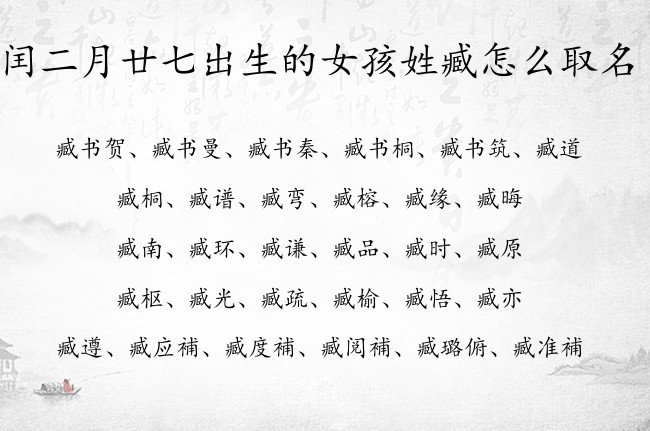 闰二月廿七出生的女孩姓臧怎么取名
臧书贺、臧书曼、臧书秦、臧书桐、臧书筑、臧道
臧桐、臧谱、臧弯、臧榕、臧缘、臧晦
臧南、臧环、臧谦、臧品、臧时、臧原
臧枢、臧光、臧疏、臧榆、臧悟、臧亦
臧遵、臧应補、臧度補、臧阅補、臧璐俯、臧准補